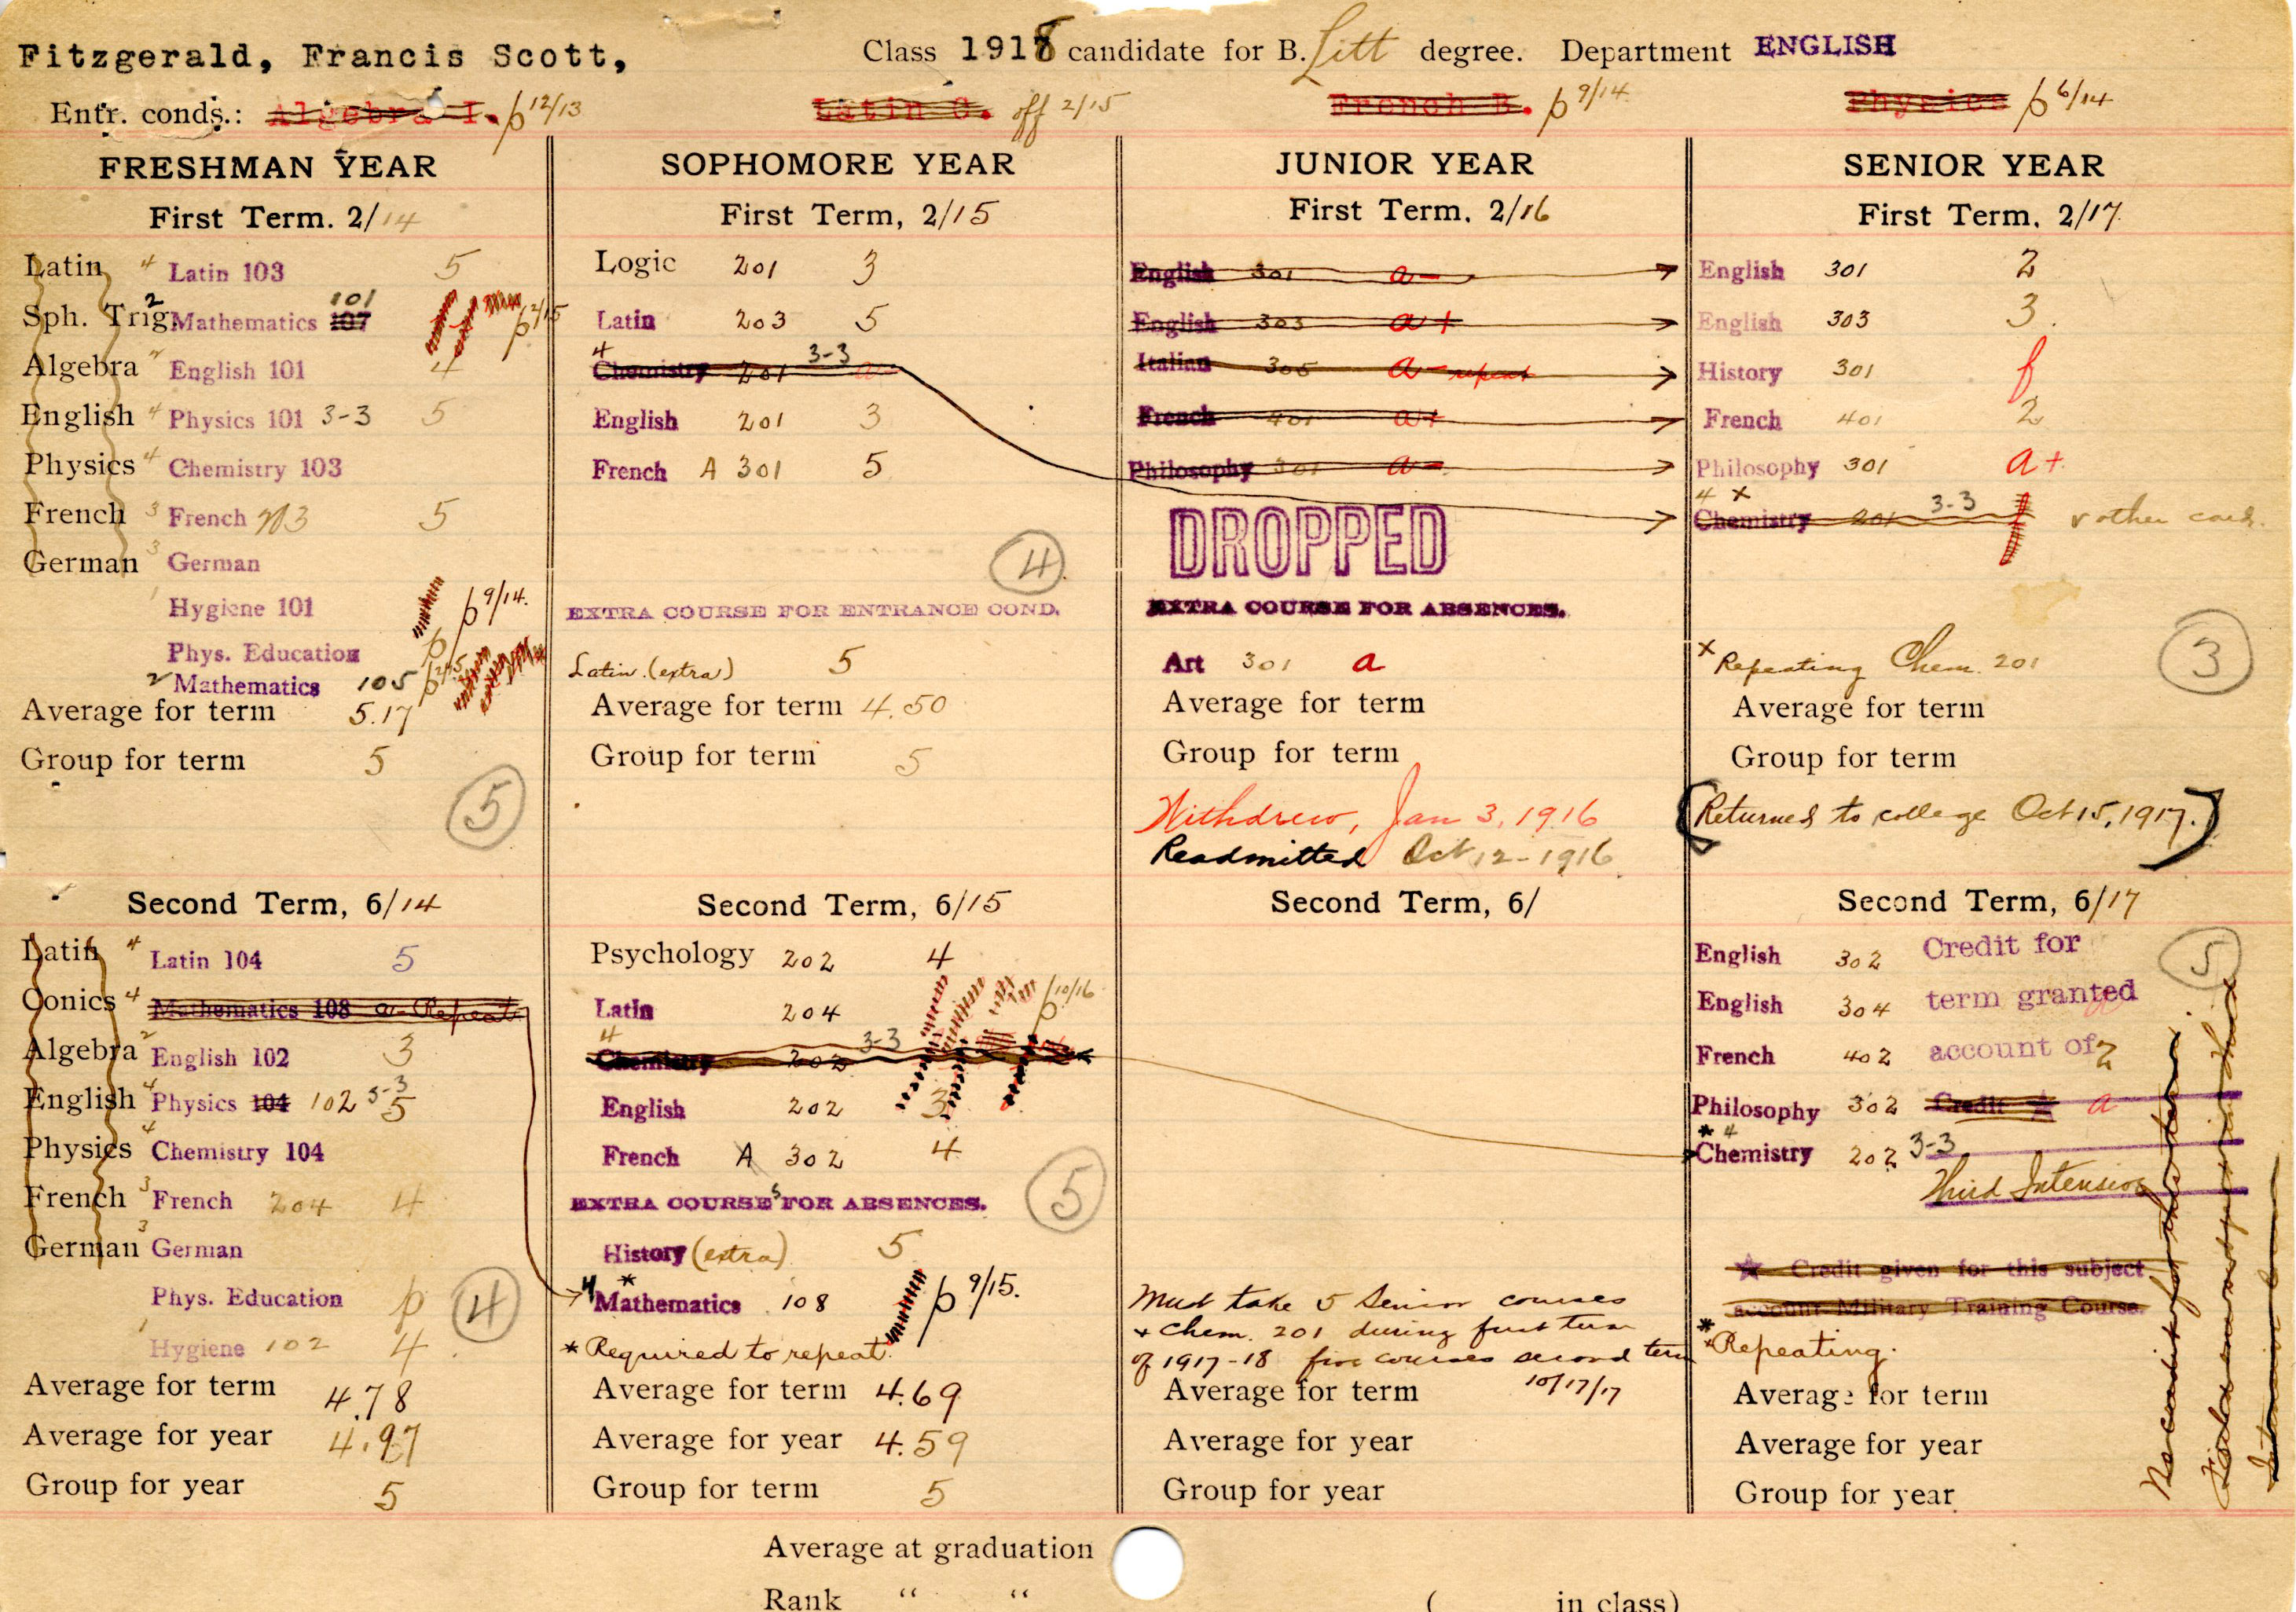 Fitzgerald, Francis Scott,
Class 1918 candidate for B. Litt degree. Department ENGLISH
Entr. conds.: Algebra I. p 12/13 Latin C. off 2/15 French B. p 9/14 Physics p 6/14
FRESHMAN YEAR
First Term. 2/14
Latin 4 Latin 103 5
Sph. Trig. 2 Mathematics 107 101 p 2/15
Algebra 2 English 101 4
English 4 Physics 101 3-3 5
Physics 4 Chemistry 103
French 3 French 203 5
German 3 German
1 Hygiene 101 p 9/14.
Phys. Education p
2 Mathematics 105 p 2/15
Average for term 5.17
Group for term 5
5
Second Term, 6/14
Latin 4 Latin 104 5
Conics 4 Mathematics 108 a- Repeat
Algebra 2 English 102 3
English 4 Physics 104 102 3-3 5
Physics 4 Chemistry 104
French 3 French 204 4
German 3 German
Phys. Education p
1 Hygiene 102 4
4
Average for term 4.78
Average for year 4.97
Group for year 5
SOPHOMORE YEAR
First Term, 2/15
Logic 201 3
Latin 203 5
4 Chemistry 201 3-3 a-
English 201 3
French A 301 5
4
EXTRA COURSE FOR ENTRANCE COND.
Latin (extra) 5
Average for term 4.50
Group for term 5
Second Term, 6/15
Psychology 202 4
Latin 204 p 10/16
4 Chemistry 202 3-3
English 202 3
French A 302 4
EXTRA COURSES FOR ABSENCES.
5
History (extra) 5
4 * Mathematics 108 p 9/15.
* Required to repeat.
Average for term 4.69
Average for year 4.59
Group for term 5
JUNIOR YEAR
First Term. 2/16
English 301 a-
English 303 a+
Italian 305 a- repeat
French 401 a+
Philosophy 301 a-
DROPPED
EXTRA COURSE FOR ABSENCES.
Art 301 a
Average for term
Group for term
Withdrew, Jan 3, 1916
Readmitted Oct 12-1916
Second Term, 6/
Must take 5 Senior courses
+ Chem. 201 during first term
of 1917-18 five courses second term
10/17/17
Average for term
Average for year
Group for year
SENIOR YEAR
First Term. 2/17
English 301 2
English 303 3.
History 301 f
French 401 2
Philosophy 301 a+
4 x Chemistry 201 3-3 f
x Repeating Chem. 201
3
Average for term
Group for term
(Returned to college Oct 15, 1917.)
Second Term, 6/17
English 302 Credit for
English 304 term granted
French 402 account of 2
Philosophy 302 Credit a
* 4 Chemistry 202 3-3
Third Intensive
5
Credit given for this subject
account Military Training Course.
* Repeating.
Average for term
Average for year
Group for year
No credit for this term.
Average at graduation
Rank “ “ ( in class)